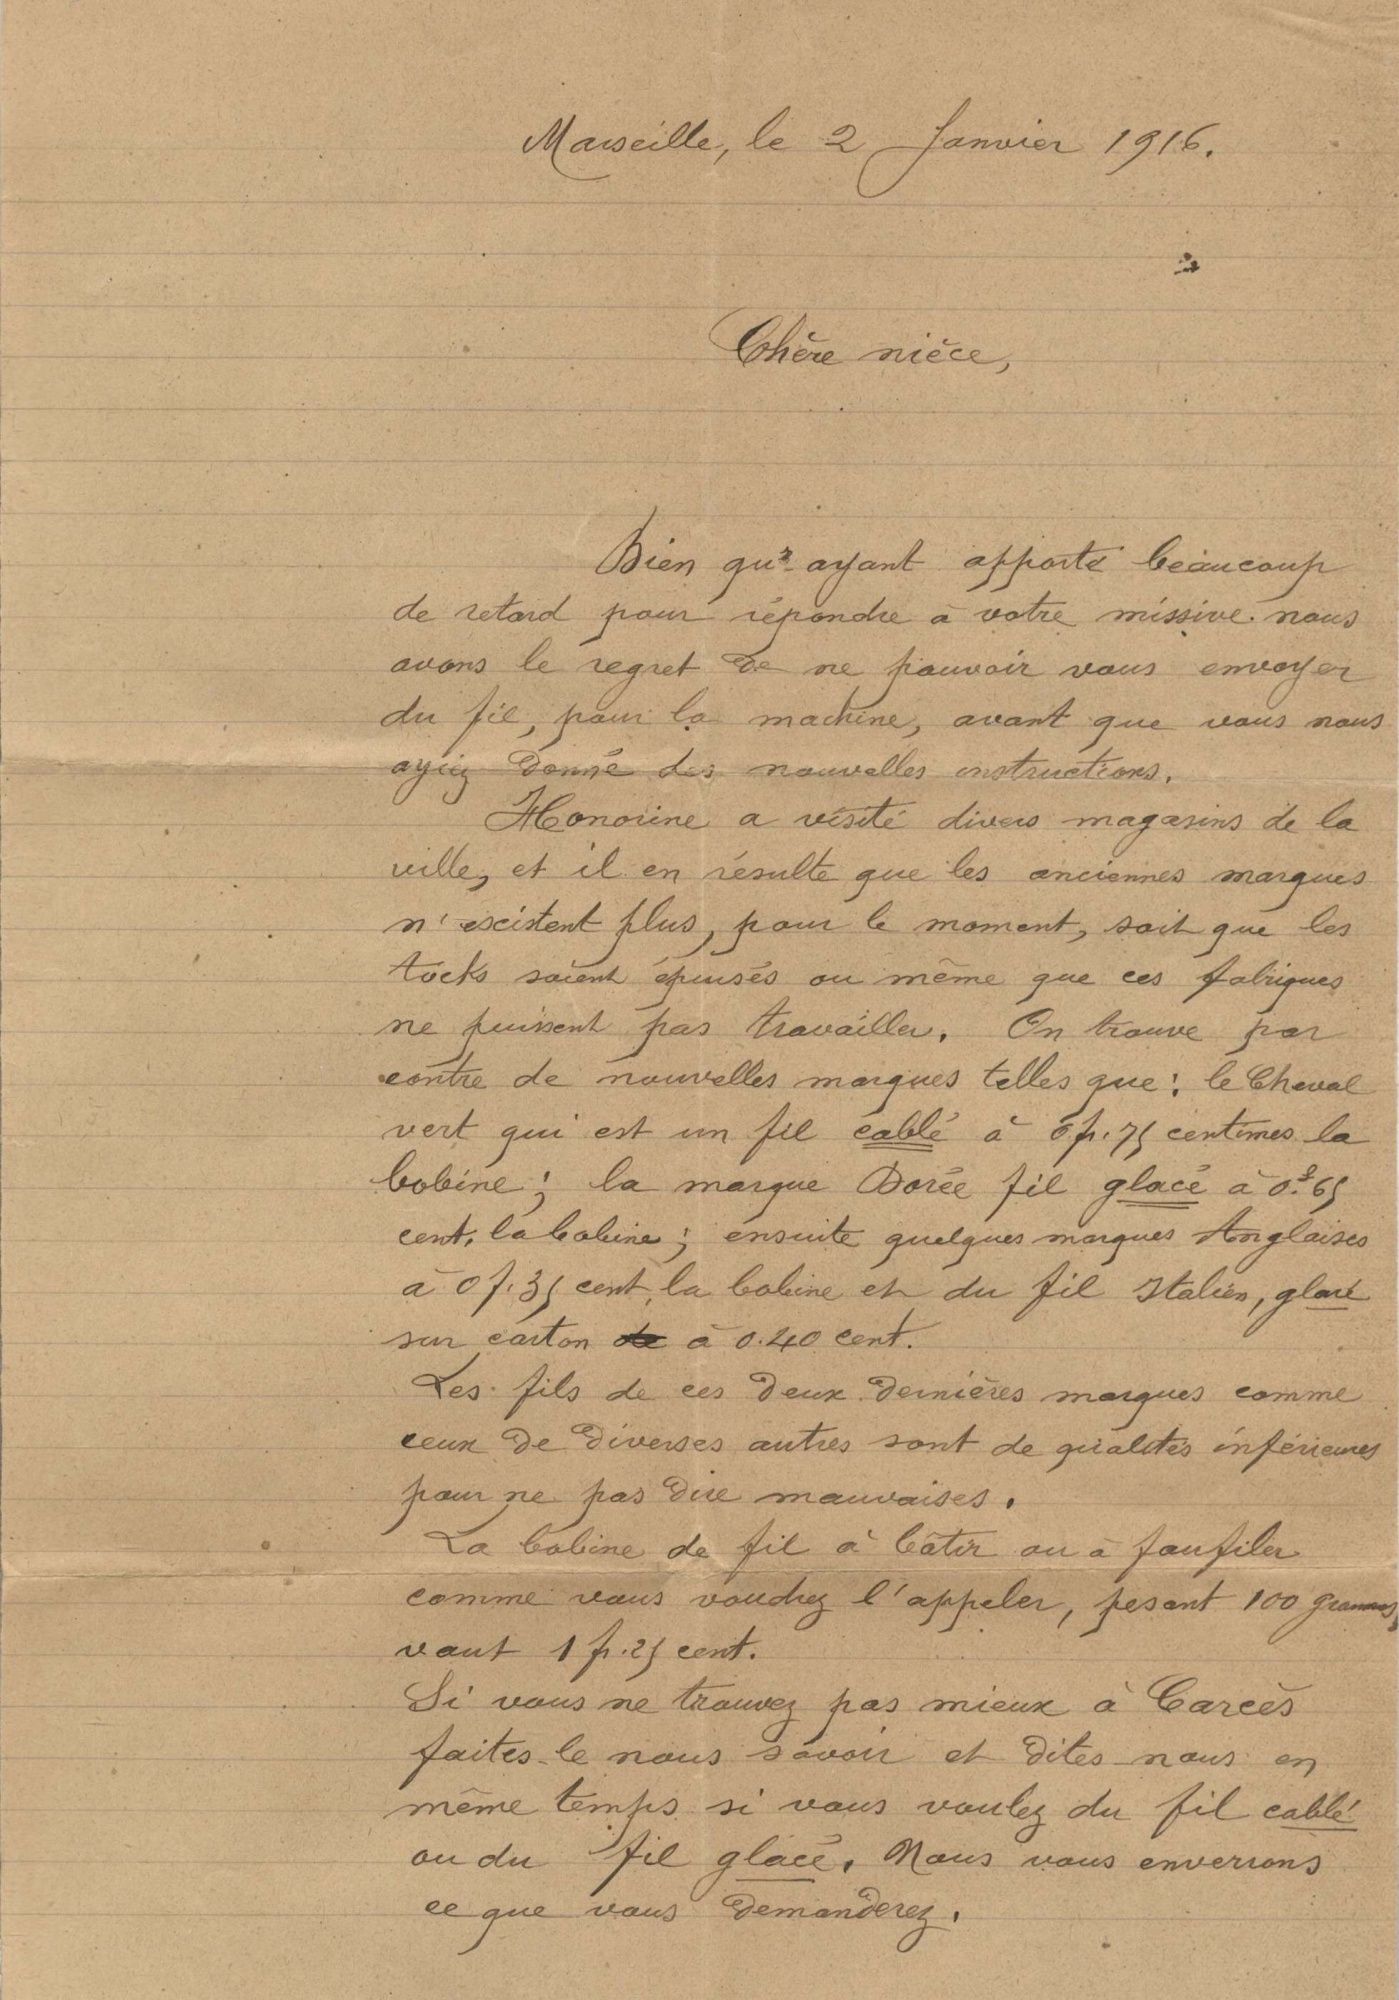 Marseille, le 2 Janvier 1916.
Chère nièce,
Bien qu'ayant apporté beaucoup
de retard pour répondre à votre missive nous
avons le regret de ne pouvoir vous envoyer
du fil, pour la machine, avant que vous nous
ayiez donné des nouvelles instructions.
Honorine a visité divers magasins de la
ville, et il en résulte que les anciennes marques
n'existent plus, pour le moment, soit que les
stocks soient épuisés ou même que ces fabriques
ne puissent pas travailler. On trouve par
contre de nouvelles marques telles que: le Cheval
vert qui est un fil cablé à 0f.75 centimes la
bobine; la marque Dorée fil glacé à 0.f65
cent. la bobine; ensuite quelques marques Anglaises
à 0f.35 cent, la bobine et du fil Italien, glacé
sur carton à 0.40 cent.
Les fils de ces deux dernières marques comme
ceux de diverses autres sont de qualités inférieures
pour ne pas dire mauvaises.
La bobine de fil à bâtir ou à faufiler
comme vous voudrez l'appeler, pesant 100 grammes,
vaut 1f.25 cent.
Si vous ne trouvez pas mieux à Carcès
faites-le nous savoir et dites-nous en
même temps si vous voulez du fil cablé
ou du fil glacé. Nous vous enverrons
ce que vous demanderez.